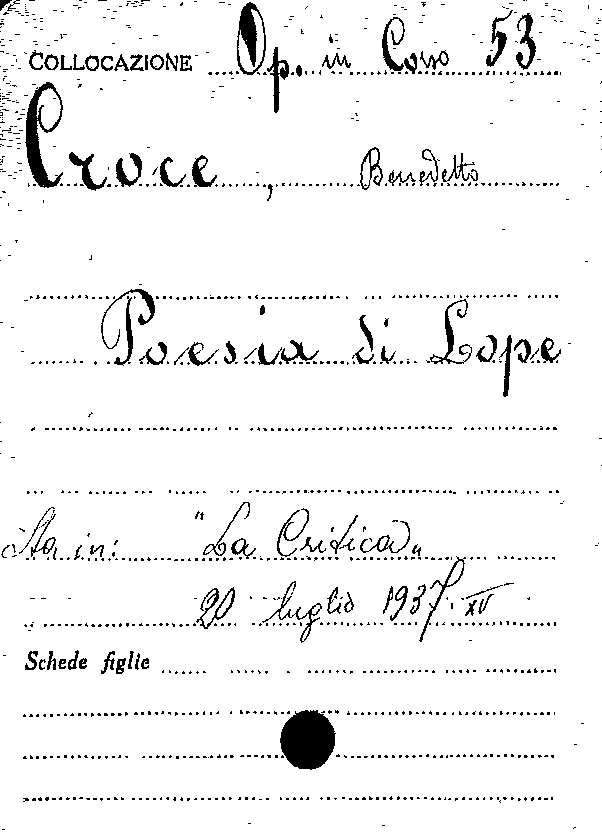 COLLOCAZIONE Op. in Corso 53
Croce, Benedetto
Poesia di Lope
Sta in: "La Critica„
20 luglio 1937. XV
Schede figlie